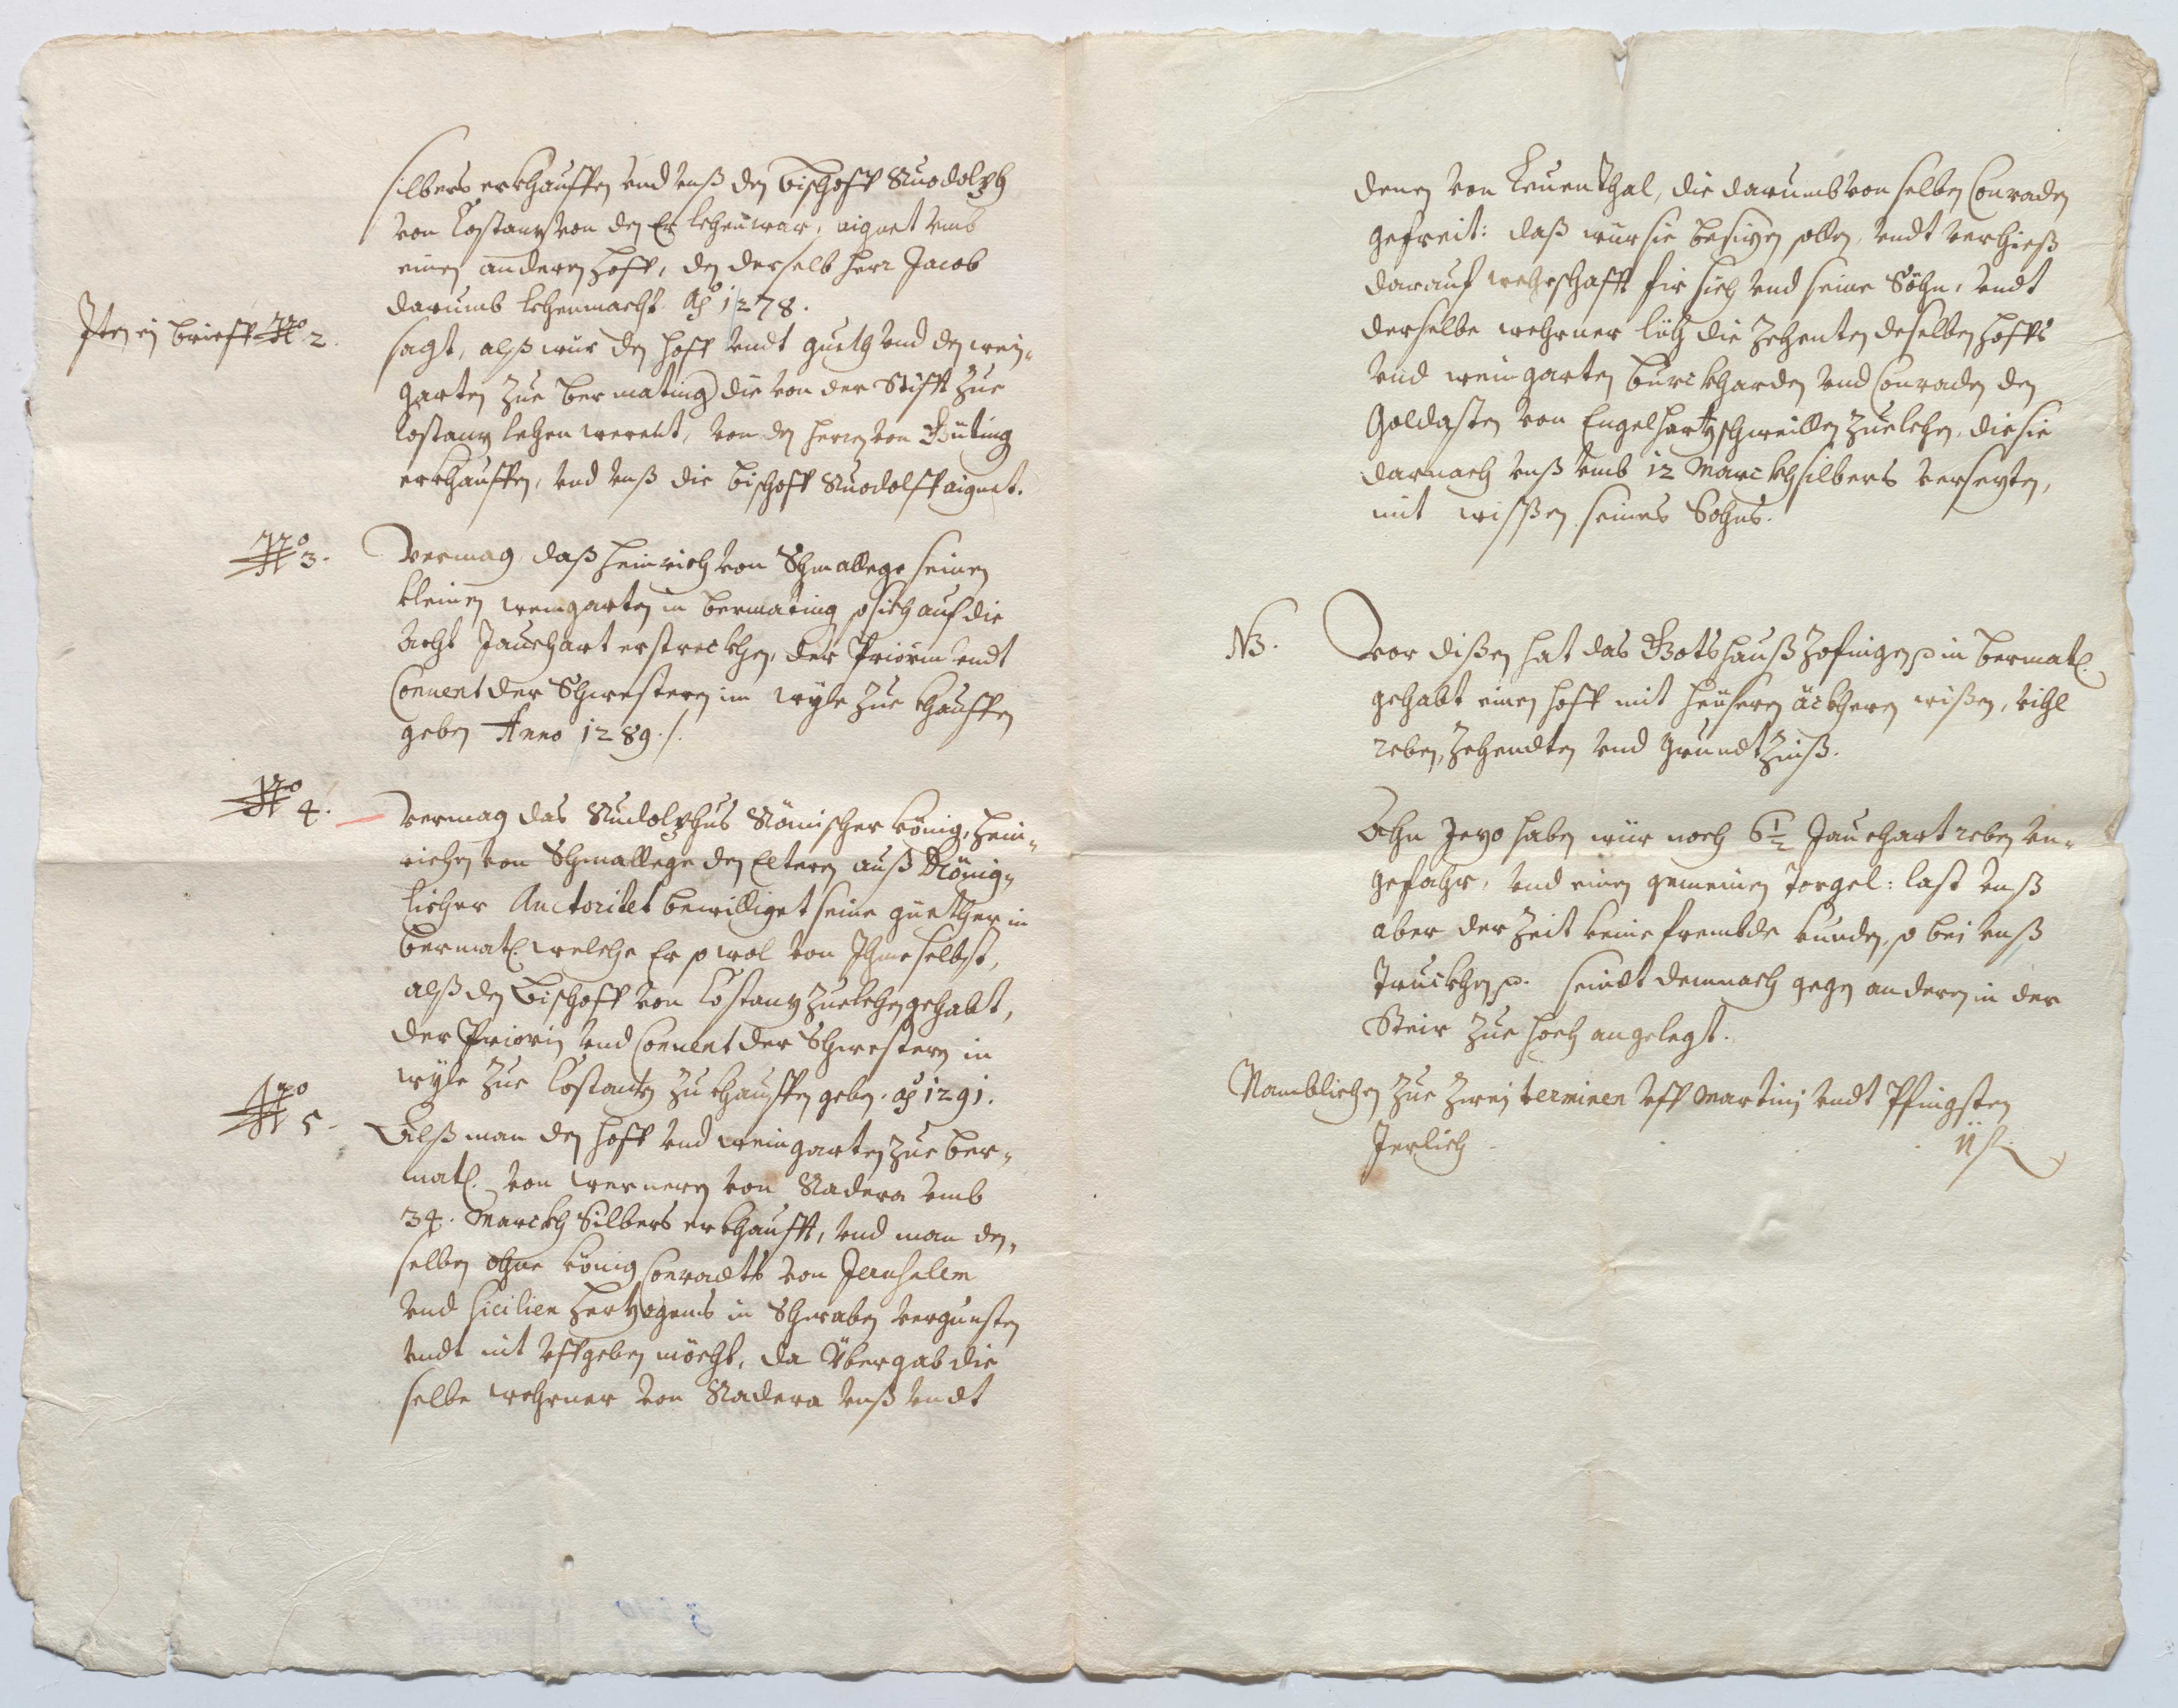 silbers erkhaufften und unß der bischoff Ruodolph
von Costantz von dem Er lehen war, aignet umb
einen anderen Hoff, den derselb herr Jacob
darumb lehenmacht. Ao 1278.
Item ein brieff No 2.
sagt, alß wür den hoff undt gueth und den wein¬
garten zue bermating die von der Stifft zue
Costanz lehen werent, von den herren von Güting
erkhaufften, und unß die bischoff Ruodolff aignet.
No 3.
Vermag daß heinrich von Schmallege seinen
kleinen weingarten in bermating so sich auf die
acht Jauchart erstreckhen, der Priorin undt
Convent der Schwesteren im wyle zue khauffen
geben Anno 1289./.
No 4.
Vermag das Rudolphus Römischer König, Hein¬
richen von Schmallege den Eltern auß König¬
licher Auctoritet bewilliget seine güether in
bermat. welche Er so wol von Ihme selbst,
alß den Bischoff von Costanz zuelehen gehabt,
der Priorin und Convent der Schwestern in
wyle zue Costantz zu khauffen geben. Ao 1291.
No 5.
Alß man den hoff und weingarten zue ber¬
mat. von wernern von Radera umb
34. Marckh Silbers erkhaufft, und man den¬
selben ohne könig Conradts von Jerusalem
und Sicilien Hertzogens in Schwaben vergunsten
undt nit uffgeben möcht, da Übergab die
selbe wehrner von Radera unß undt
denen von Leuenthal, die darumb von selben Conraden
gefreit: daß wür sie besizen sollen, undt verhieß
darauf wehrschafft für sich und seine Söhn, undt
derselbe wehrner lüh die Zehenten deselben Hoffs
und weingarten Burckharden und Conraden den
Goldasten von Engelhartzschweillen zuelehen, die sie
darnach unß umb 12 Marckh silbers versezten,
mit wißßen seines Sohns.
NB.
Vor dißen hat das Gotshauß Zofingen in bermat.
gehabt einen hoff mit heüseren äckheren wißen, vihl
reben, Zehendten und Grundt Zinß.
Ahn Jezo haben wür noch 6 1/2 Jauchart reben un¬
gefahr, und einen gemeinen Torgel: last unß
aber der Zeit keine frembde kunden, so bei unß
Truckhen. seindt demnach gegen anderen in der
Steir zue hoch angelegt.
Namblichen zue zwei terminen uff Martini undt Pfingsten
Jerlich